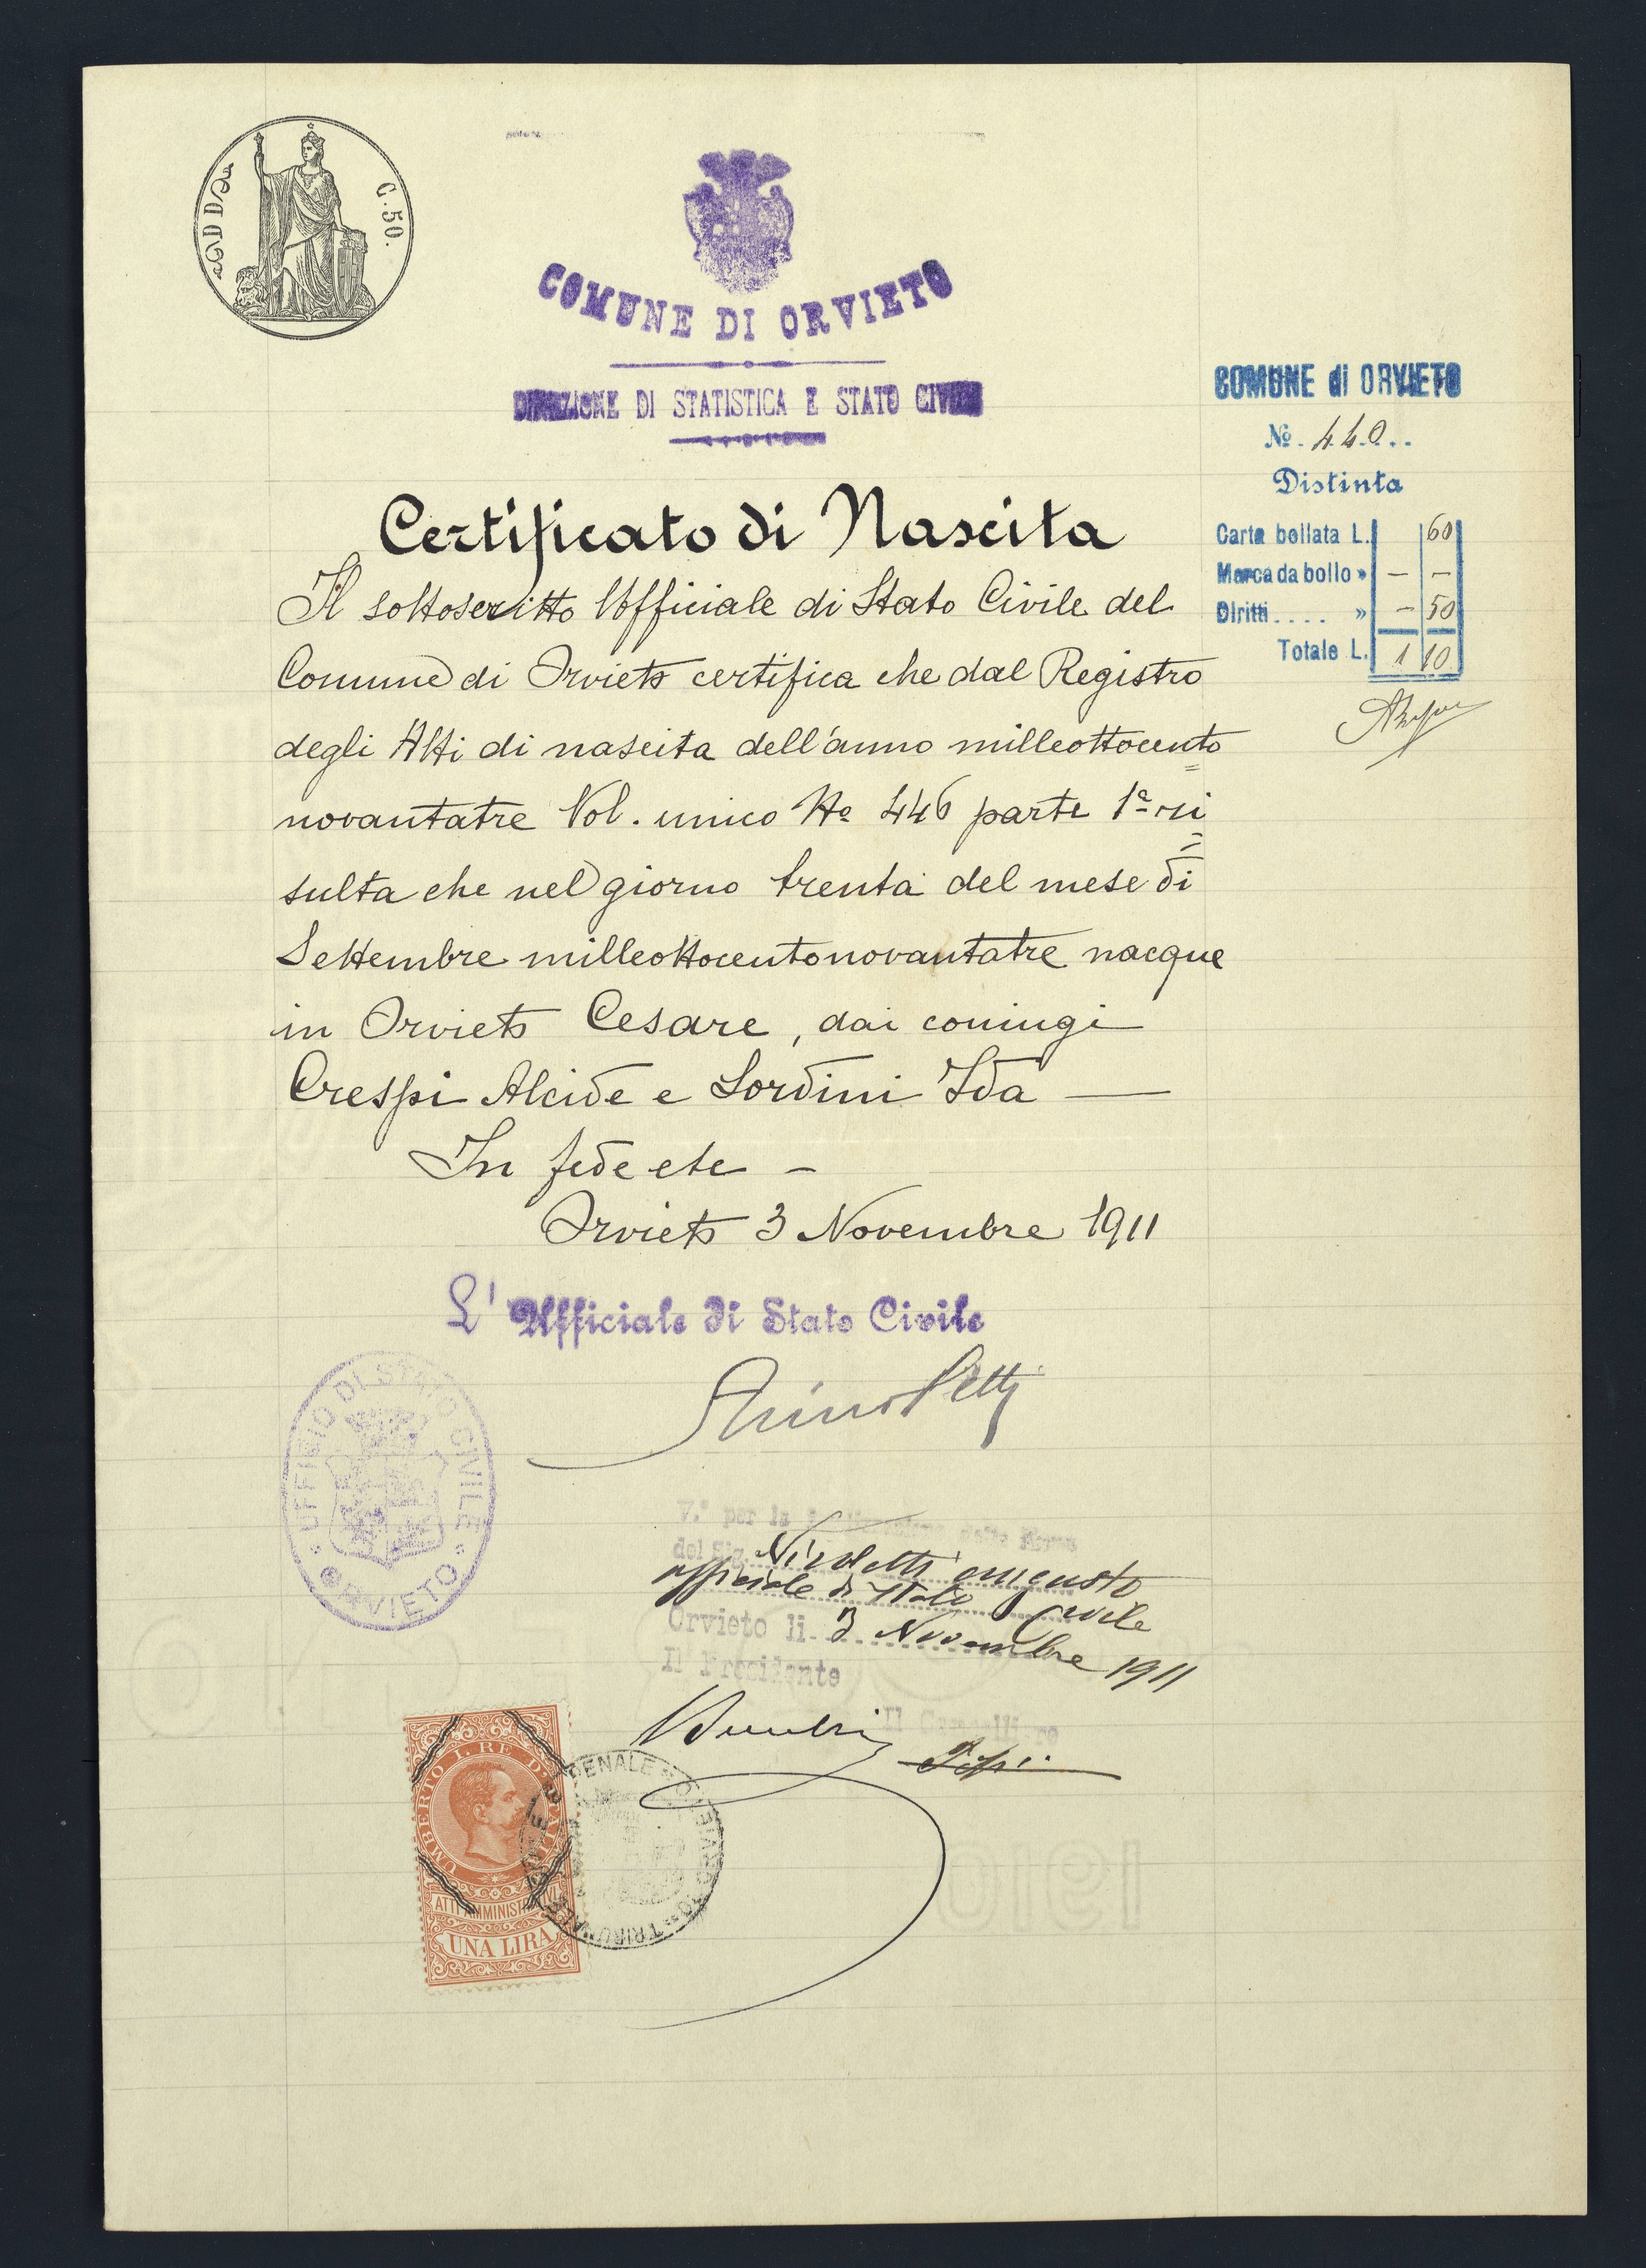 C. 50.
COMUNE DI ORVIETO
DIREZIONE DI STATISTICA E STATO CIVILE
COMUNE di ORVIETO
No. 440
Distinta
Carta bollata L. 60
Marca da bollo » — —
Diritti.... » — 50
Totale L. 1 10
Certificato di Nascita
Il sottoscritto Ufficiale di Stato Civile del
Comune di Orvieto certifica che dal Registro
degli Atti di nascita dell'anno milleottocento
novantatre Vol. unico No 446 parte 1a ri=
sulta che nel giorno trenta del mese di
Settembre milleottocentonovantatre nacque
in Orvieto Cesare, dai coniugi
Crespi Alcide e Sordini Ida —
In fede etc —
Orvieto 3 Novembre 1911
L' Ufficiale di Stato Civile
UFFICIO DI STATO CIVILE
ORVIETO
V.° per la
del Sig. Nicoletti Augusto
ufficiale di Stato Civile
Orvieto li 3 Novembre 1911
Il Presidente
Il Cancelliere
UMBERTO I. RE D'ITALIA
ATTI AMMINISTRATIVI
UNA LIRA
PENALE
1910